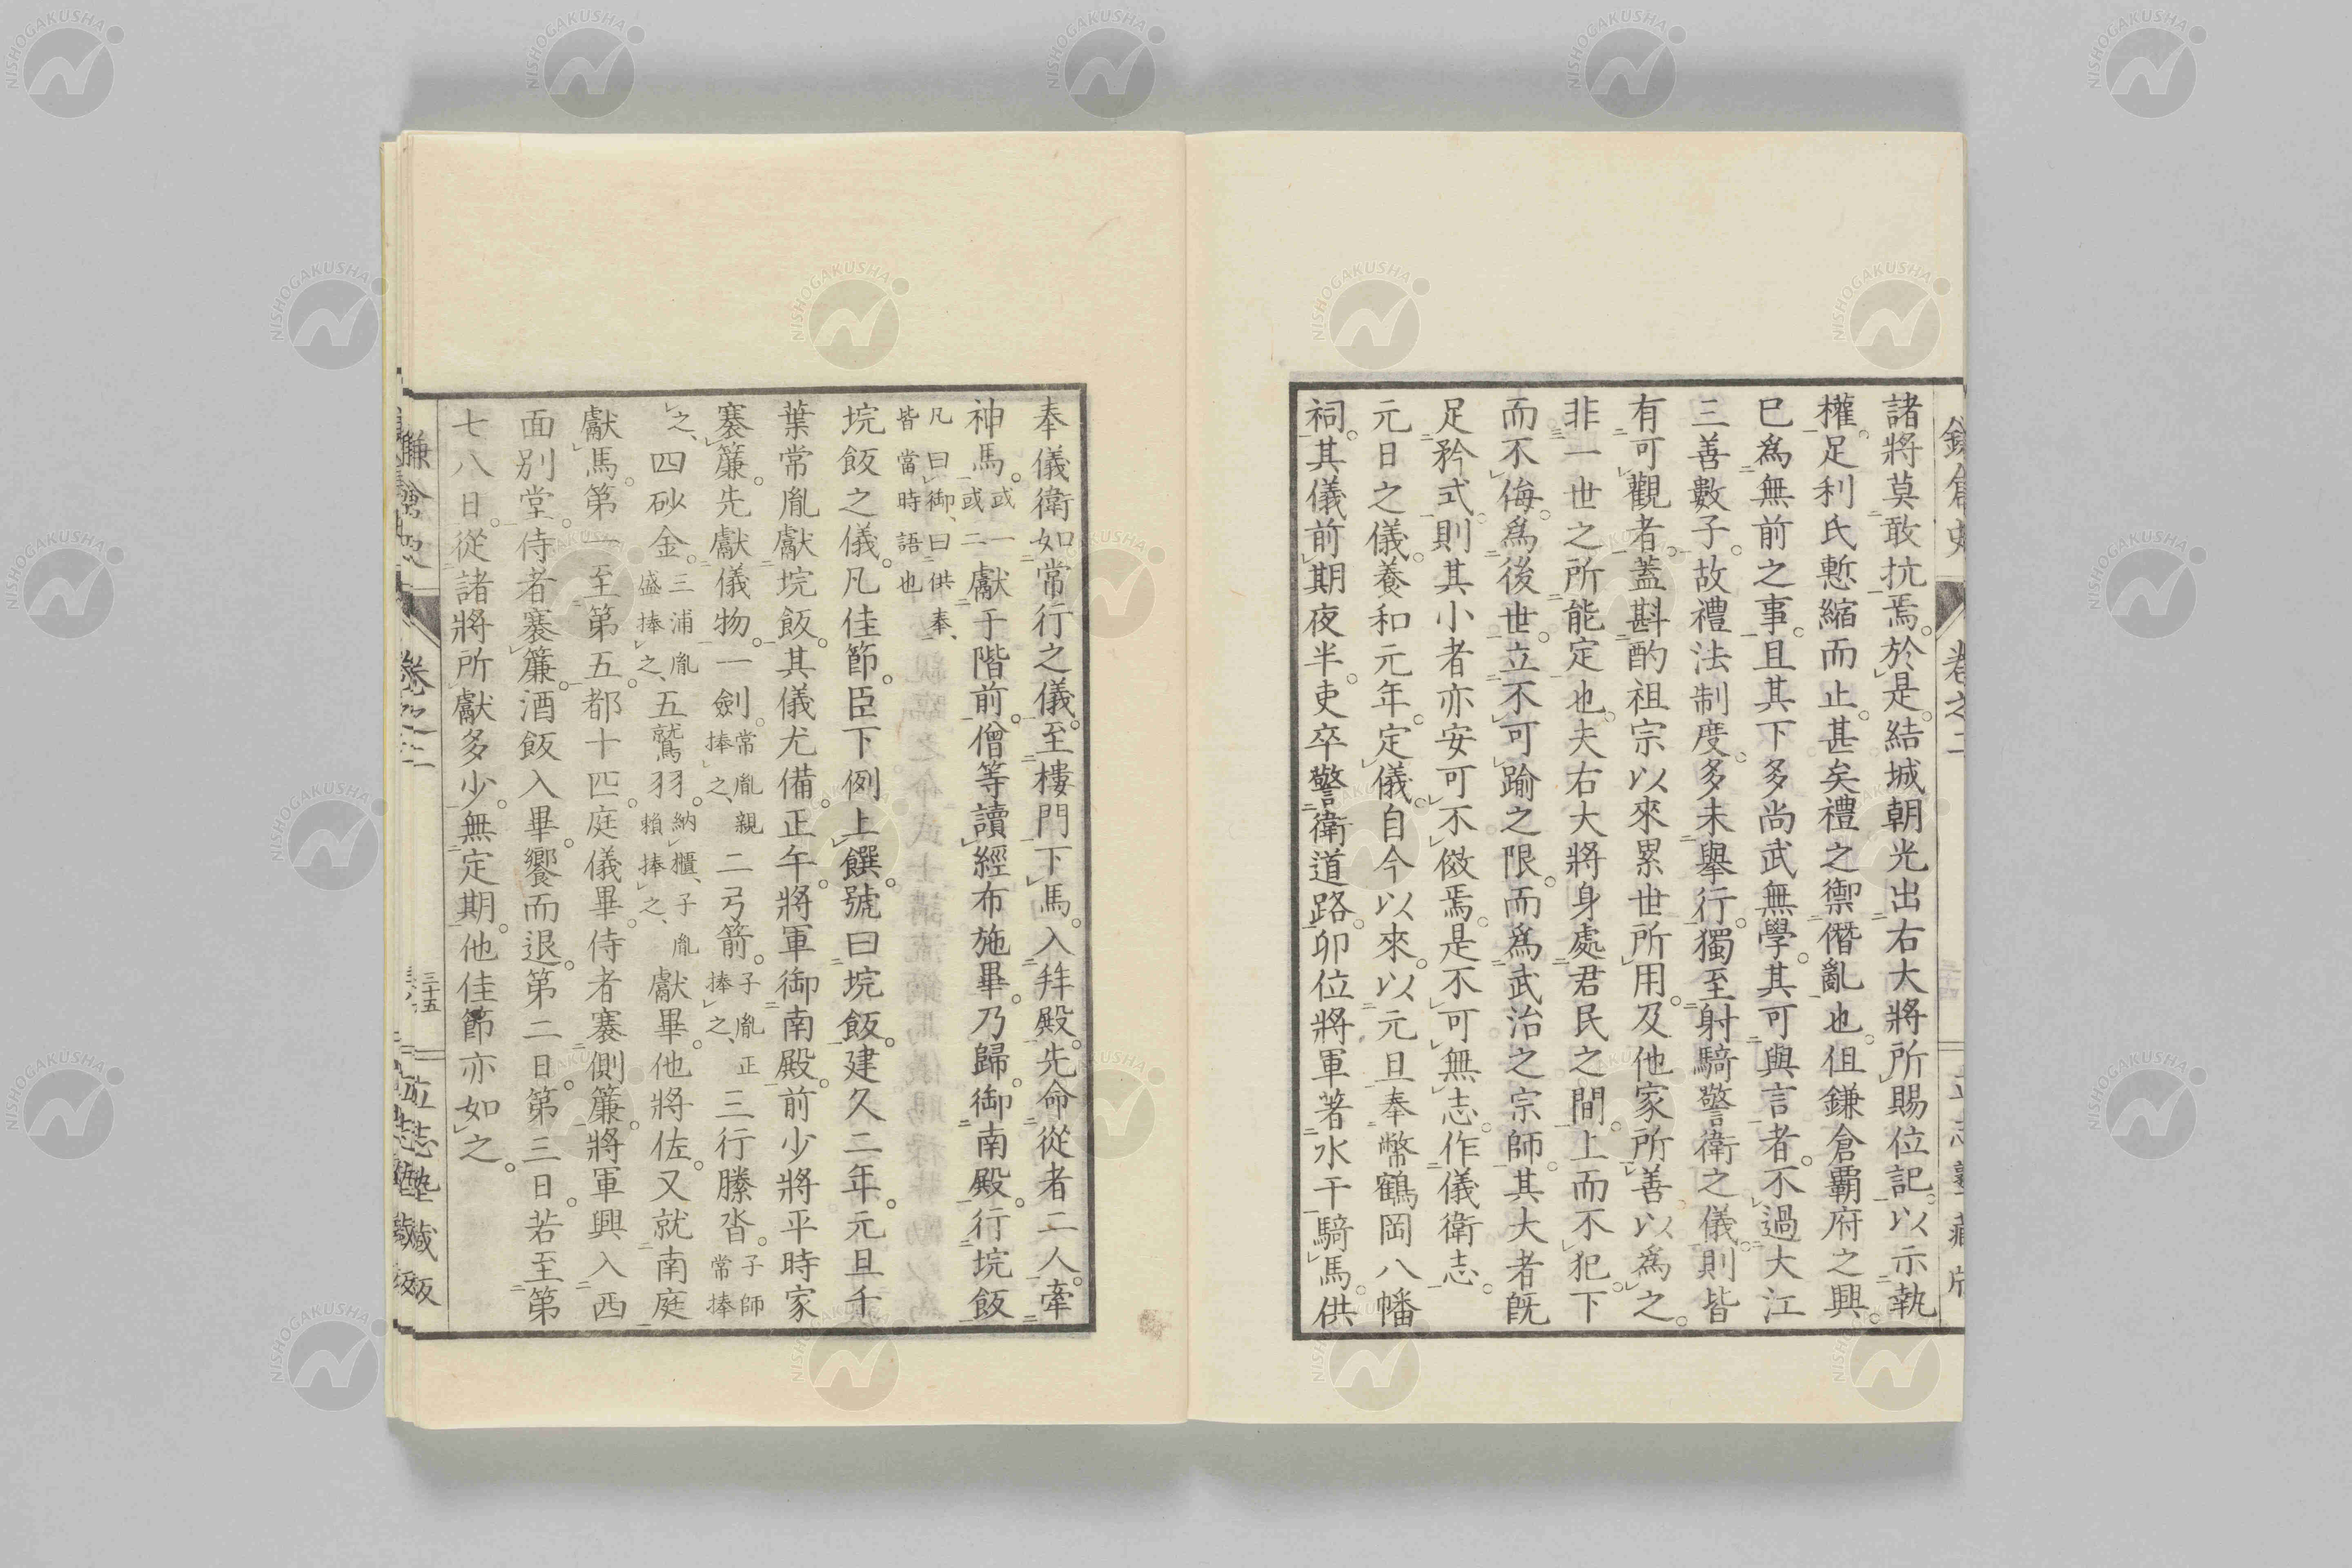 諸將莫敢抗焉。於是。結城朝光出右大將所賜位記。以示執
權。足利氏慙縮而止。甚矣禮之禦僭亂也。但鎌倉霸府之興。
已爲無前之事。且其下多尚武無學。其可與言者。不過大江
三善數子。故禮法制度。多未擧行。獨至射騎警衛之儀。則皆
有可觀者。蓋斟酌祖宗以來累世所用。及他家所善以爲之。
非一世之所能定也。夫右大將身處君民之間。上而不犯。下
而不侮。爲後世。立不可踰之限。而爲武治之宗師。其大者既
足矜式。則其小者亦安可不倣焉。是不可無志。作儀衛志。
元日之儀。養和元年。定儀。自今以來。以元旦奉幣鶴岡八幡
祠。其儀前期夜半。吏卒警衛道路。卯位將軍著水干騎馬。供
奉儀衛如常行之儀。至樓門下馬。入拜殿。先命從者二人。牽
神馬。或一或二獻于階前。僧等讀經布施畢。乃歸。御南殿。行垸飯
凡曰御、曰供奉、皆當時語也
垸飯之儀。凡佳節。臣下例上饌。號曰垸飯。建久二年。元旦千
葉常胤獻垸飯。其儀尤備。正午。將軍御南殿。前少將平時家
褰簾。先獻儀物。一劍。常胤親捧之、二弓箭。子胤正捧之、三行縢沓。子師常捧
之、四砂金。三浦胤盛捧之、五鷲羽。納櫃、子胤賴捧之、獻畢。他將佐。又就南庭
獻馬。第一至第五。都十四。庭儀畢。侍者褰側簾。將軍興入西
面別堂。侍者褰簾。酒飯入畢。饗而退。第二日。第三日。若至第
七八日。從諸將所獻多少。無定期。他佳節亦如之。
三十五
NISHOGAKUSHA